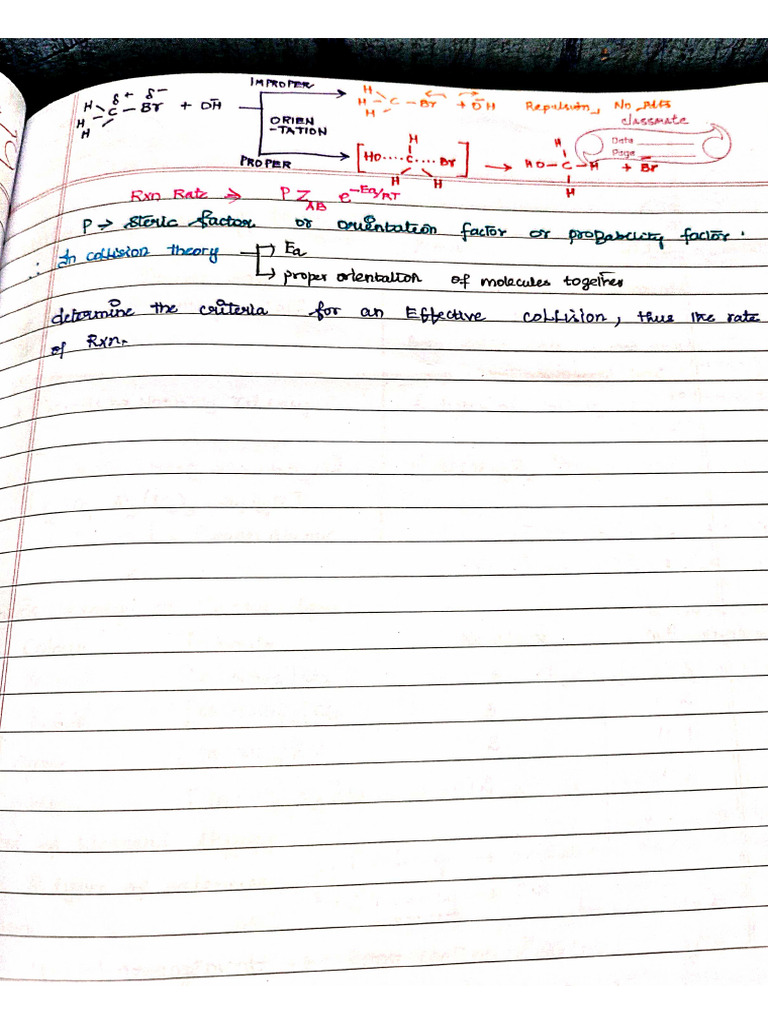 IMPROPER
H δ+ δ-
H - C - Br + OH̄
H
H
H - C - Br + ŌH Repulsion, No
H
classmate
ORIEN
-TATION
Date
Page
PROPER
H
[HO.....C....Br]
H H
→
H
HO-C-H + B̄r
H
Rxn Rate → P Z_AB e^-Ea/RT
P → Steric factor or orientation factor or probability factor.
∴ In collision theory → Ea
→ proper orientation of molecules together
determine the criteria for an Effective collision, thus the rate
of Rxn.